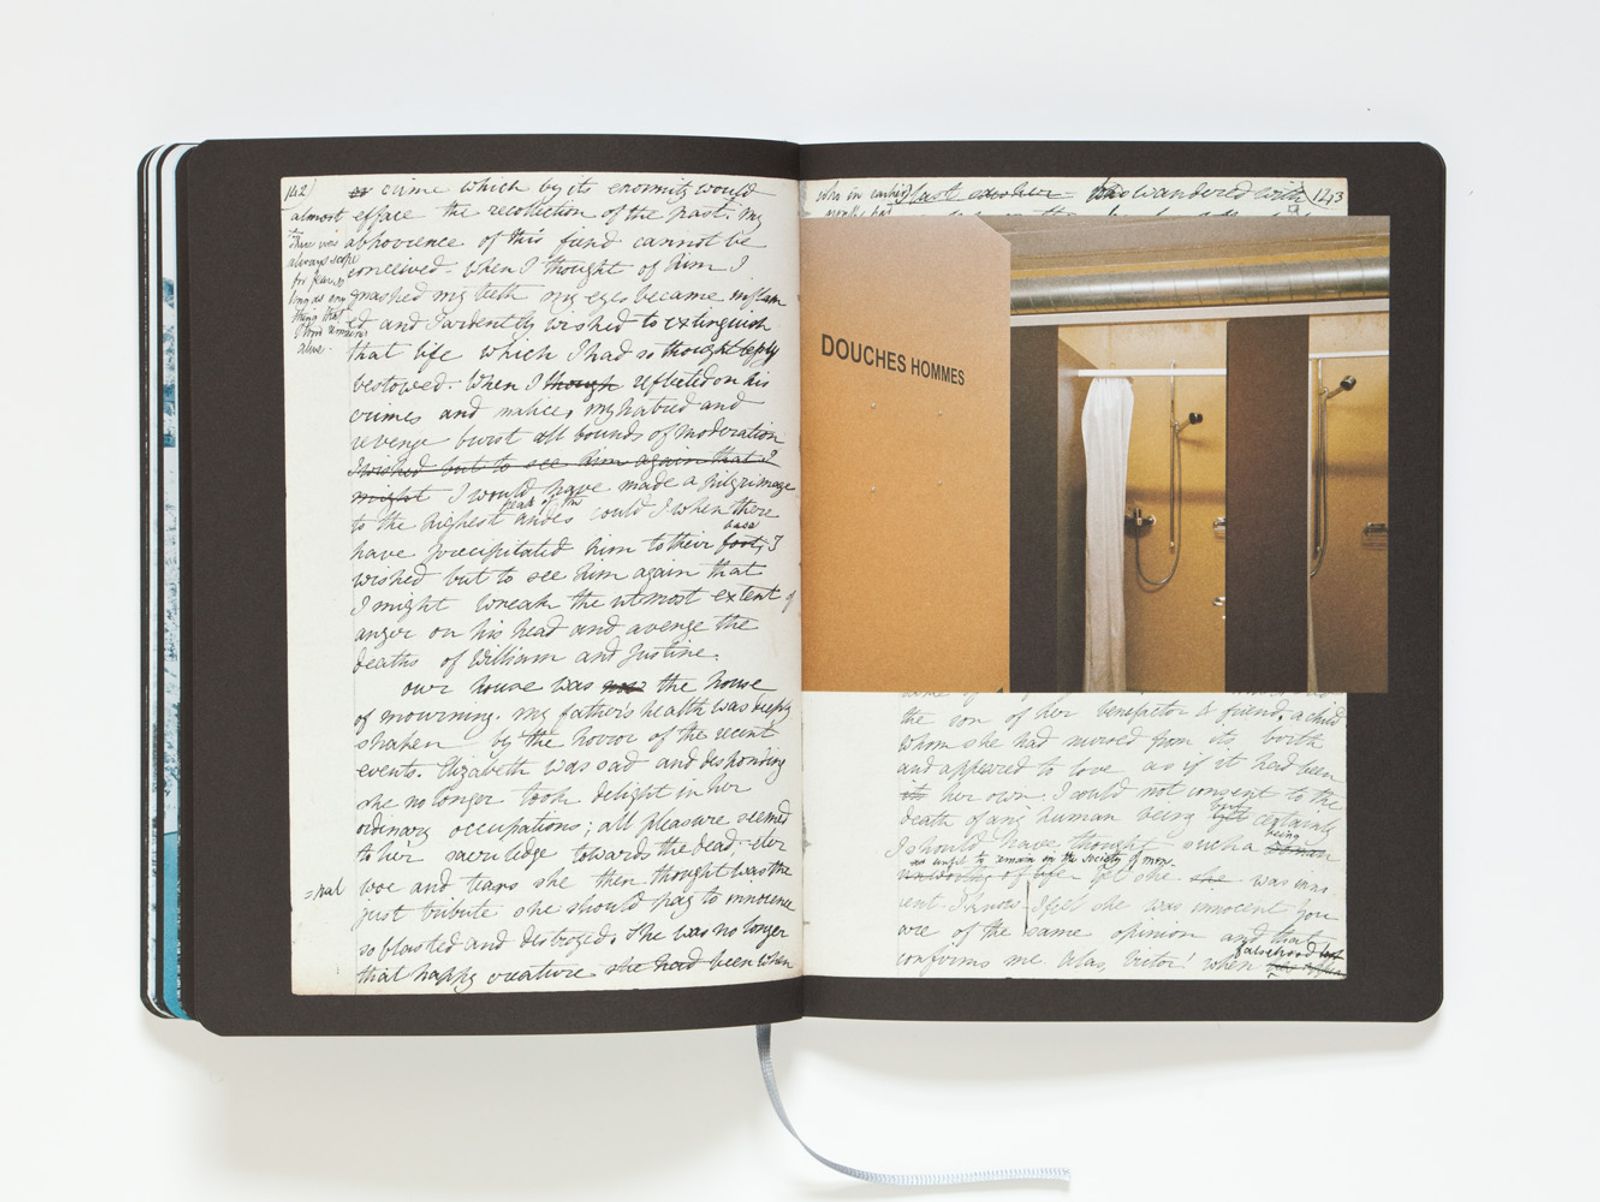 142)
or crime which by its enormity would
almost efface the recollection of the past. My
there was
always scope
for fear so
long as any
thing that
I loved remained
alive.
abhorrence of this fiend cannot be
conceived. When I thought of him I
gnashed my teeth my eyes became inflam
ed and I ardently wished to extinguish
that life which I had so thoughtlessly
bestowed. When I though reflected on his
crimes and malice, my hatred and
revenge burst all bounds of moderation
I wished but to see him again that I
might I would have made a pilgrimage
peak of the
to the highest andes could I when there
base
have precipitated him to their foot; I
wished but to see him again that
I might wreak the utmost extent of
anger on his head and avenge the
deaths of William and Justine.
Our house was now the house
of mourning. My father's health was deeply
shaken by the horror of the recent
events. Elizabeth was sad and desponding
she no longer took delight in her
ordinary occupations; all pleasure seemed
to her sacriledge towards the dead; eter
=nal woe and tears she then thought was the
just tribute she should pay to innocence
so blasted and destroyed. She was no longer
that happy creature she had been when
who in earlier last wandered with 123
DOUCHES HOMMES
the son of her benefactor & friend, a child
whom she had nursed from its birth
and appeared to love as if it had been
its her own. I could not consent to the
but
death of any human being but certainly
being
I should have thought such a woman
as unfit to remain in the society of men.
unworthy of life. Yet she she was inno
cent I know I feel she was innocent You
are of the same opinion and that
falsehood
confirms me. Alas, Victor! when